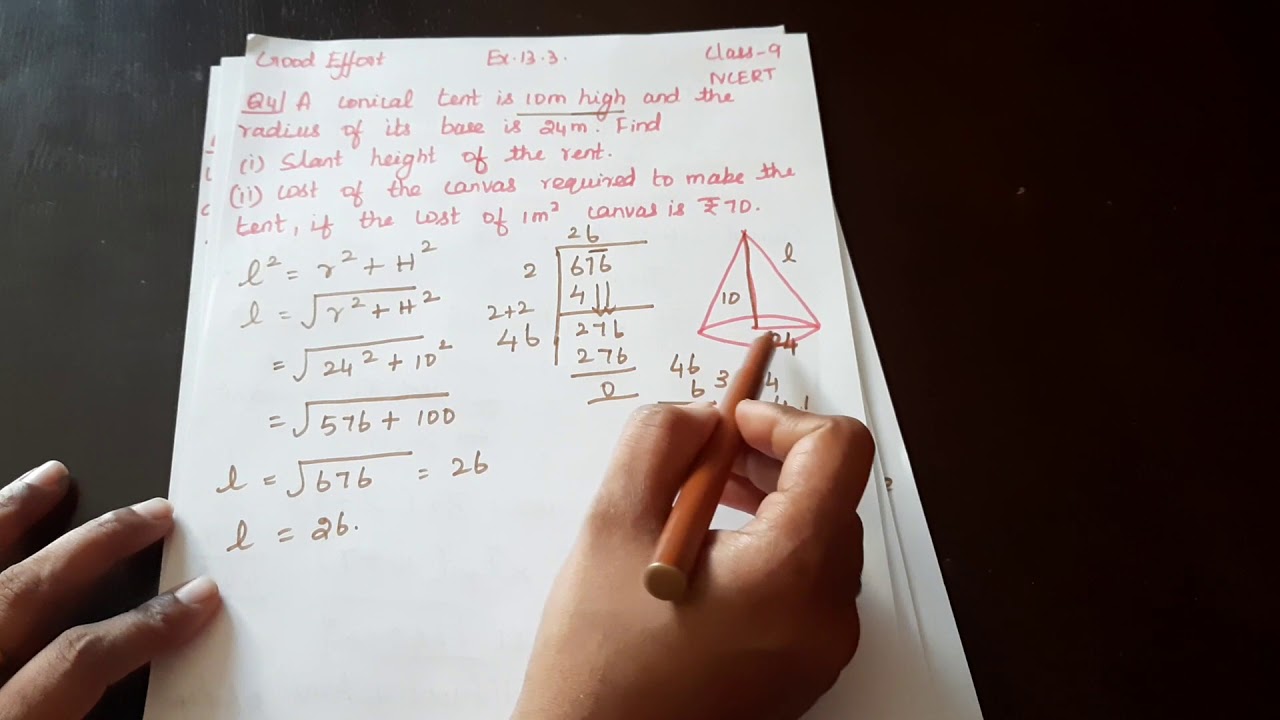 Good Effort Ex.13.3. Class-9
NCERT
Q4/ A conical tent is 10m high and the
radius of its base is 24m. Find
(i) Slant height of the rent.
(ii) cost of the canvas required to make the
tent, if the cost of 1m² canvas is ₹70.
l² = r² + H²
l = √r² + H²
= √24² + 10²
= √576 + 100
l = √676 = 26
l = 26.
26
2 676
4
2+2 276
46 276
0
l
10
24
46
6
3
4